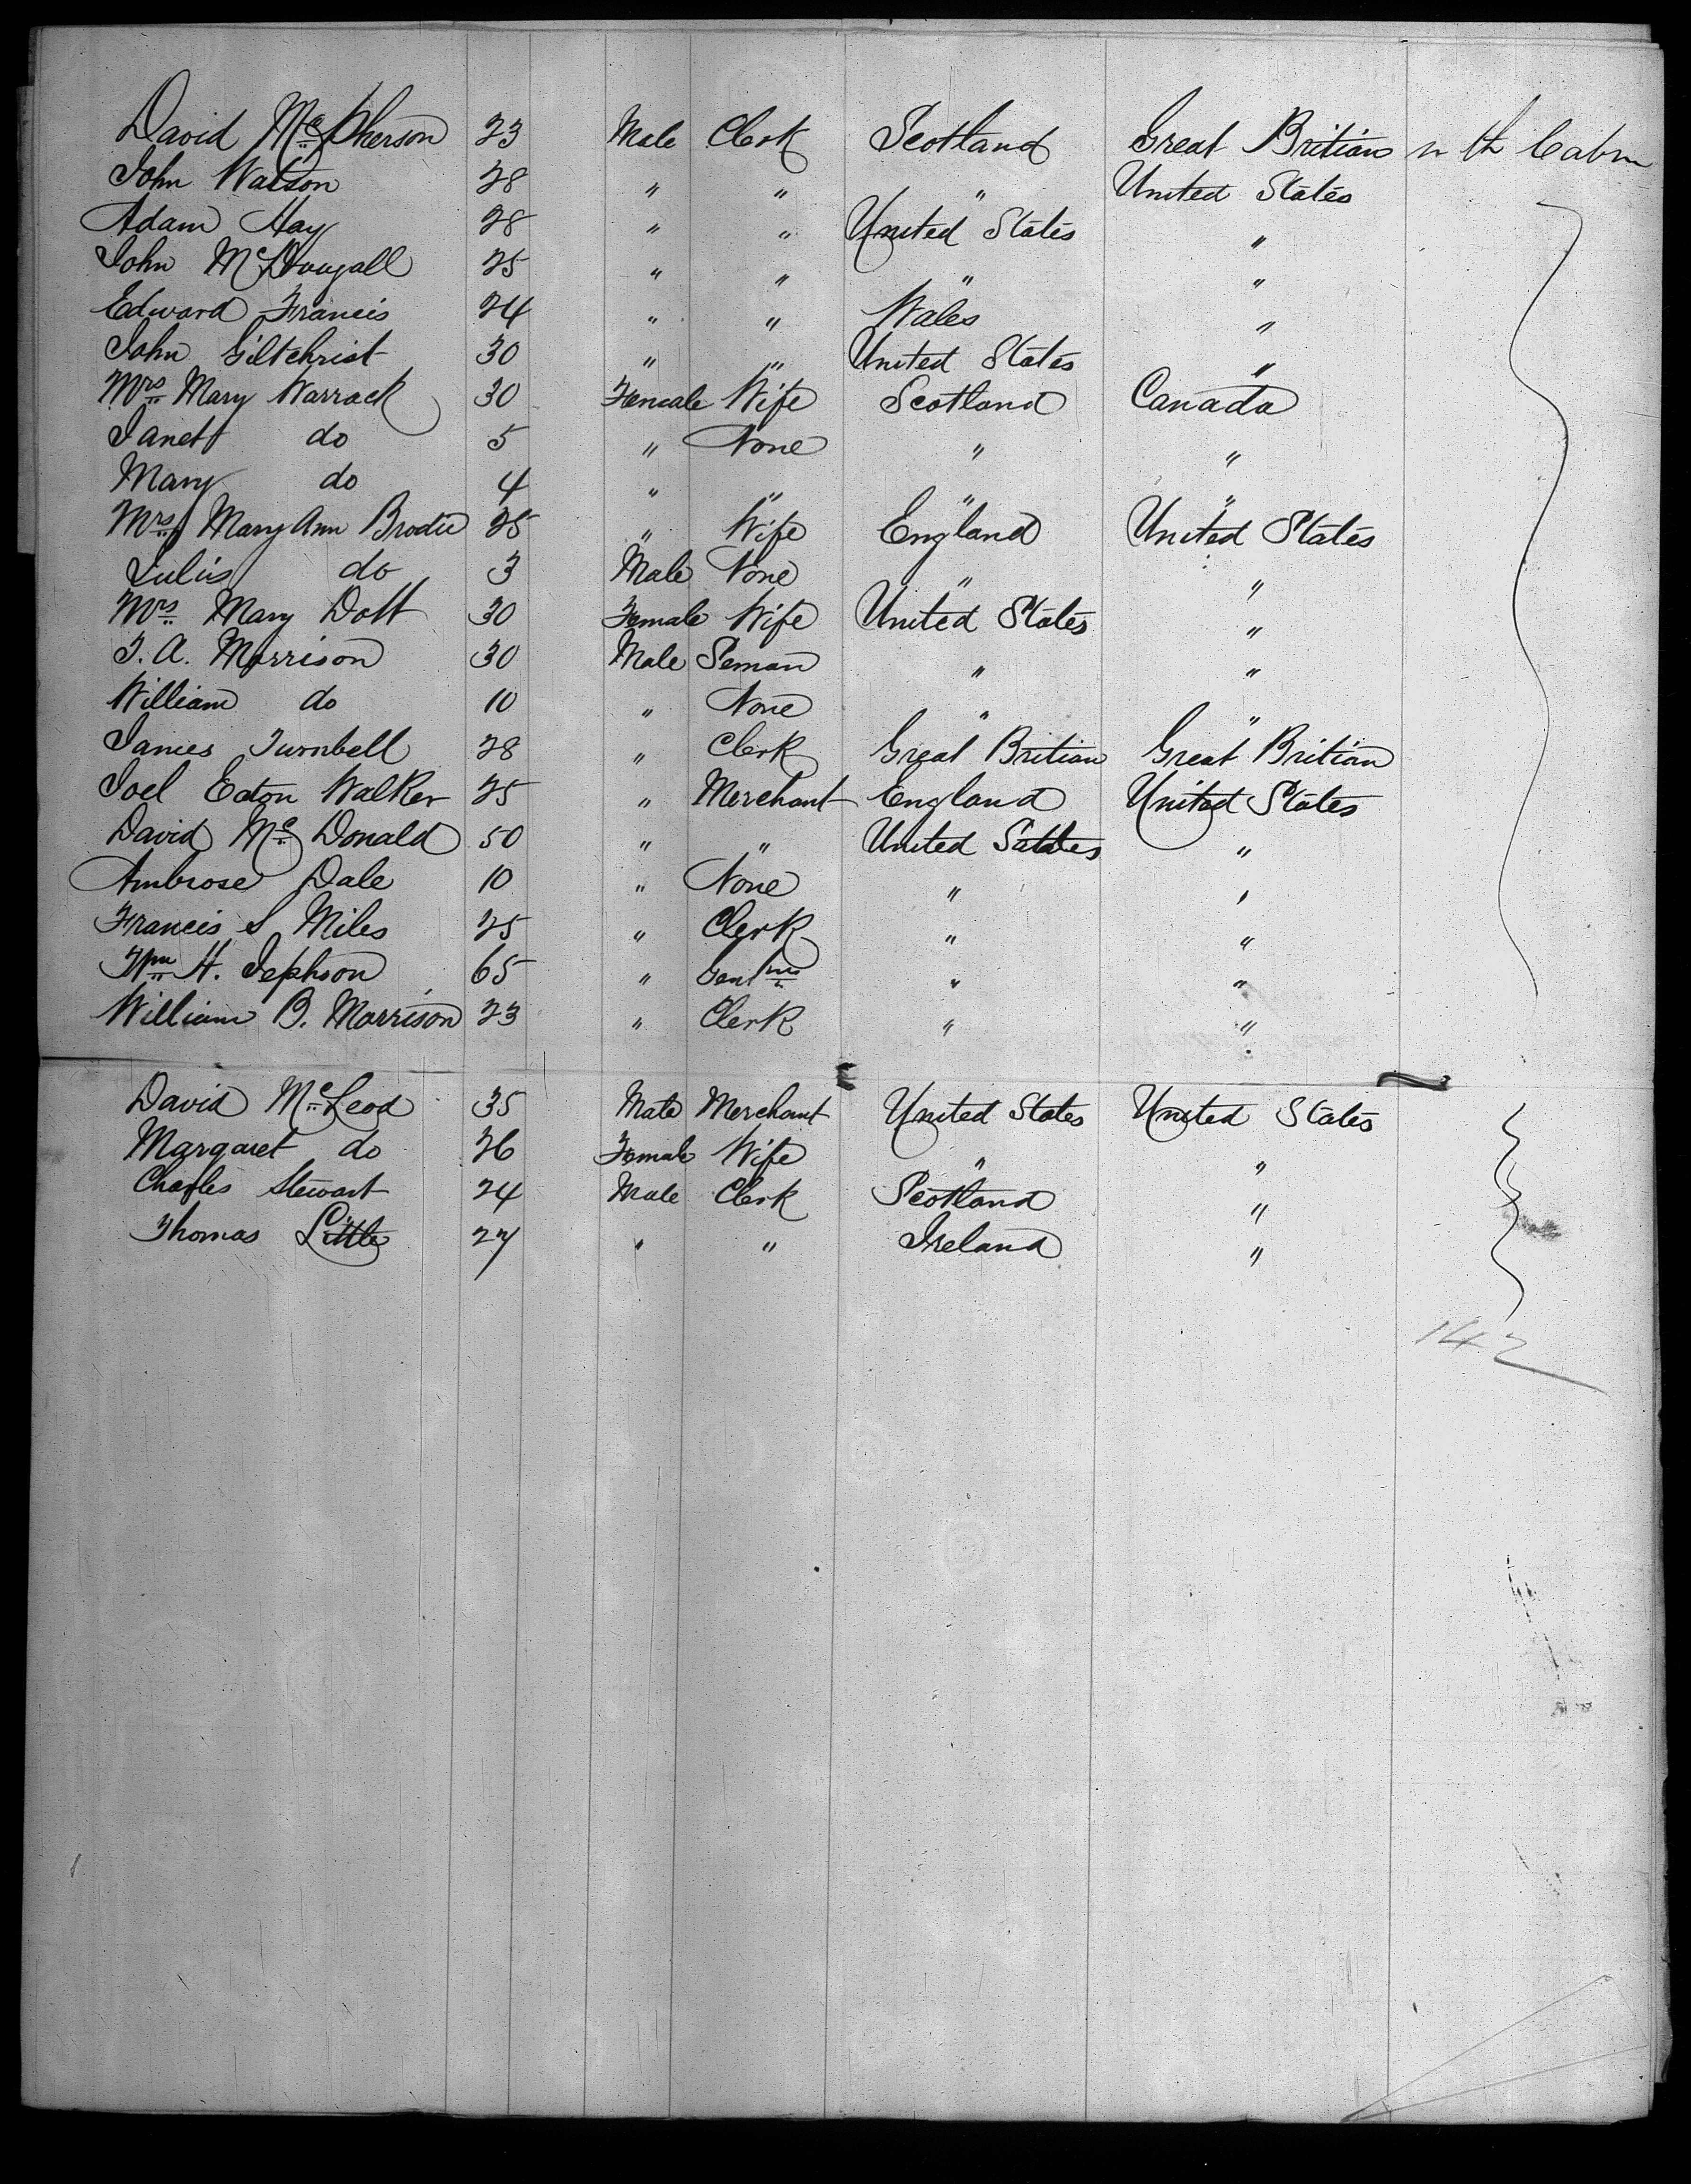 David Mc Pherson 23 Male Clerk Scotland Great Britian in the Cabin
John Watson 28 " " " United States
Adam Hay 28 " " United States "
John McDougall 25 " " " "
Edward Francis 24 " " Wales "
John Giltchrist 30 " " United States "
Mrs Mary Warrack 30 Female Wife Scotland Canada
Janett do 5 " None " "
Mary do 4 " " " "
Mrs Mary Ann Brodie 25 " Wife England United States
Julius do 3 Male None " "
Mrs Mary Dott 30 Female Wife United States "
J. A. Morrison 30 Male Seman " "
William do 10 " None " "
James Turnbell 28 " Clerk Great Britian Great Britian
Joel Eaton Walker 25 " Merchant England United States
David Mc Donald 50 " " United States "
Ambrose Dale 10 " None " "
Francis S Miles 25 " Clerk " "
Wm H. Jephson 65 " " "
William B. Morrison 23 " Clerk " "
David McLeod 35 Male Merchant United States United States
Margaret do 26 Female Wife " "
Charles Stewart 24 Male Clerk Scotland "
Thomas Little 27 " " Ireland "
142